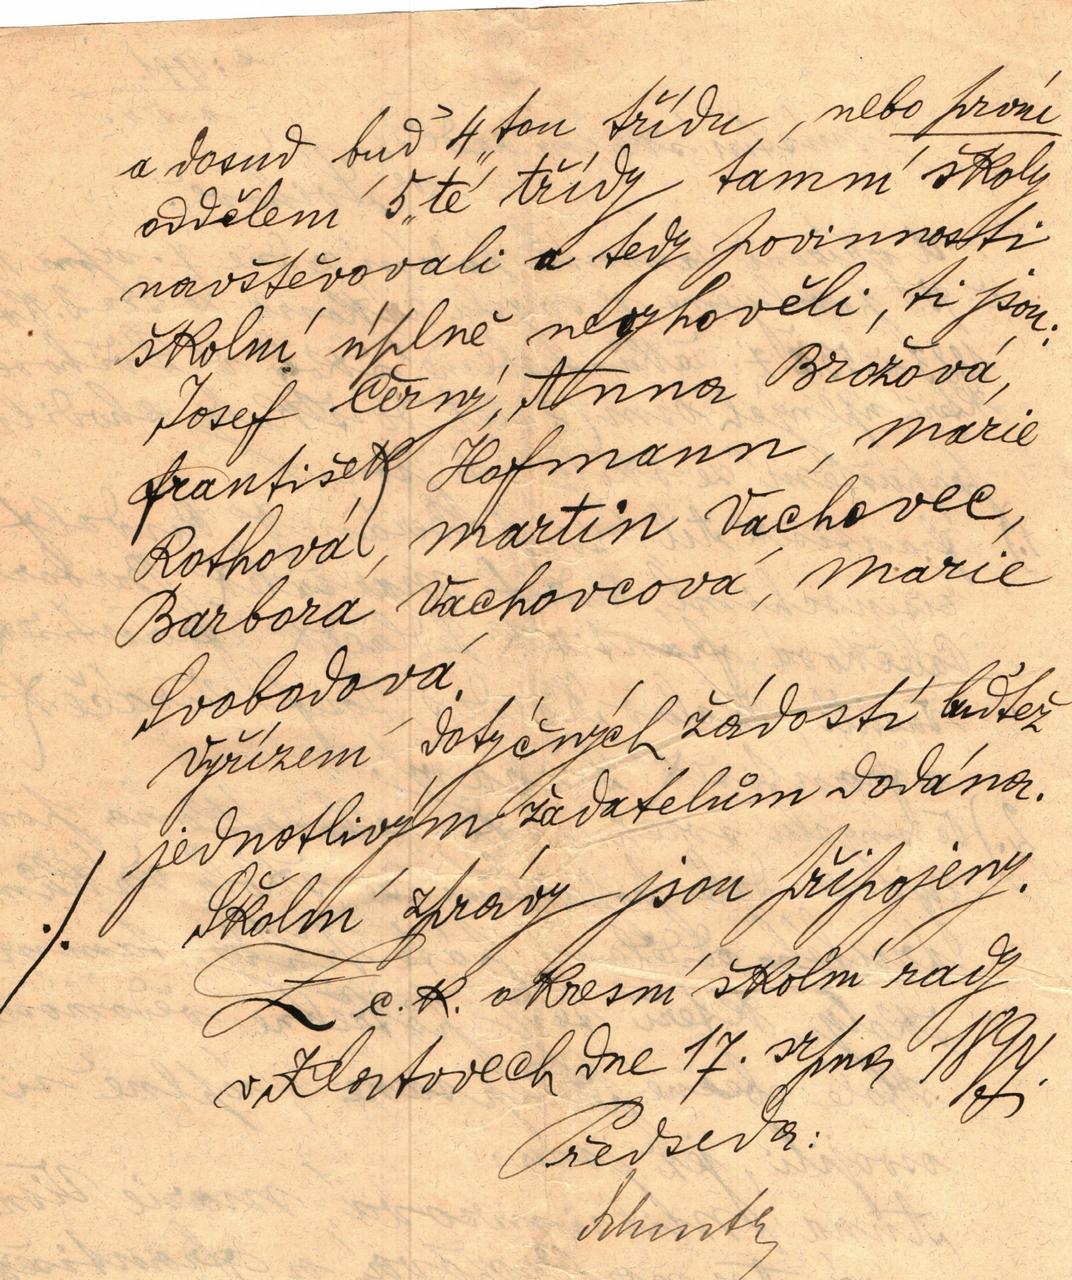 a dosud buď 4"tou třídu, nebo první
oddělení 5"té třídy tamní školy
navštěvovali a tedy povinnosti
školní úplně nevyhověli, ti jsou:
Josef Černý, Anna Brožová,
František Hofmann, Marie
Rothová, Martin Vachovec,
Barbora Vachovcová, Marie
Svobodová.
Vyřízení dotyčných žádostí buďtež
jednotlivým žadatelům dodána.
./. Školní zprávy jsou připojeny.
Z c. k. okresní školní rady
v Klatovech dne 17. srpna
Předseda: